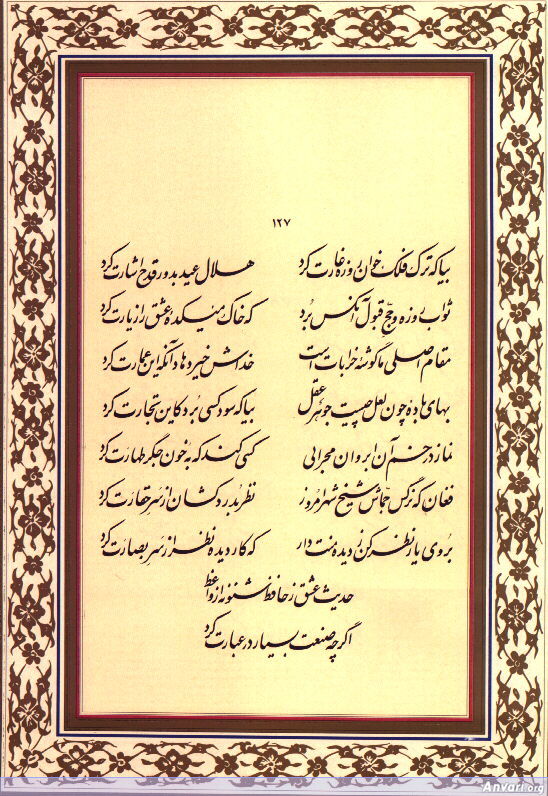 ۱۲۷
بیا که ترک فلک خوان روزه غارت کرد هلال عید بدور قدح اشارت کرد
ثواب روزه و حج قبول آنکس برد که خاک میکدهٔ عشق را زیارت کرد
مقام اصلی ما گوشهٔ خرابات است خداش خیر دهاد آنکه این عمارت کرد
بهای بادهٔ چون لعل چیست جوهر عقل بیا که سود کسی برد کاین تجارت کرد
نماز در خم آن ابروان محرابی کسی کند که به خون جگر طهارت کرد
فغان که نرگس جماش شیخ شهر امروز نظر بدردکشان از سر حقارت کرد
بروی یار نظر کن ز دیده منت دار که کار دیده نظر از سر بصارت کرد
حدیث عشق ز حافظ شنو نه از واعظ
اگرچه صنعت بسیار در عبارت کرد
Anvari.org